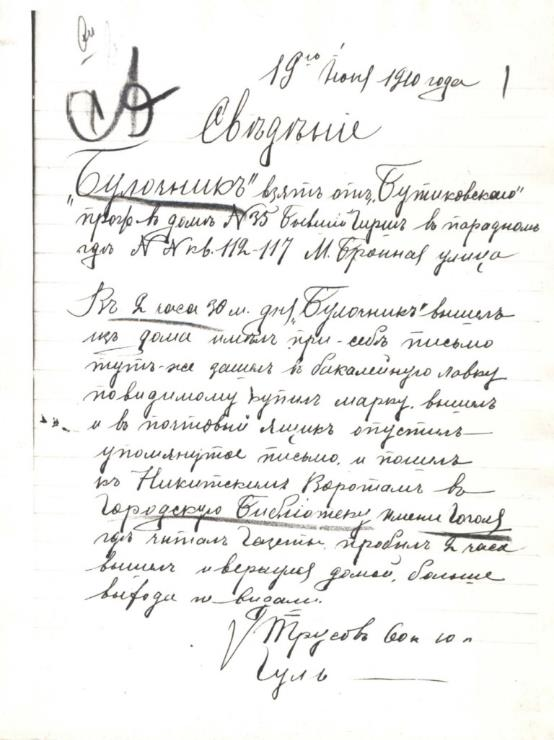 19го Июня 1910 года
1
Свѣдѣніе
"Булочникъ" взятъ отъ "Бутиковскаго"
проф. въ домѣ № 35 бывший Гиршъ в парадномъ
гдѣ №№ кв. 112-117 М. Бронная улица
Въ 2 часа 30 м. дня "Булочникъ" вышелъ
изъ дома имѣлъ при-себѣ письмо
тутъ-же зашелъ в бакалейную лавку
повидимому купилъ марку, вышелъ
и в почтовый ящикъ опустилъ
упомянутое письмо, и пошелъ
къ Никитскимъ Воротамъ в
Городскую Библіотеку имени Гоголя
гдѣ читалъ газеты, пробылъ 2 часа
вышелъ и вернулся домой, больше
выхода не видали.
Трусовъ